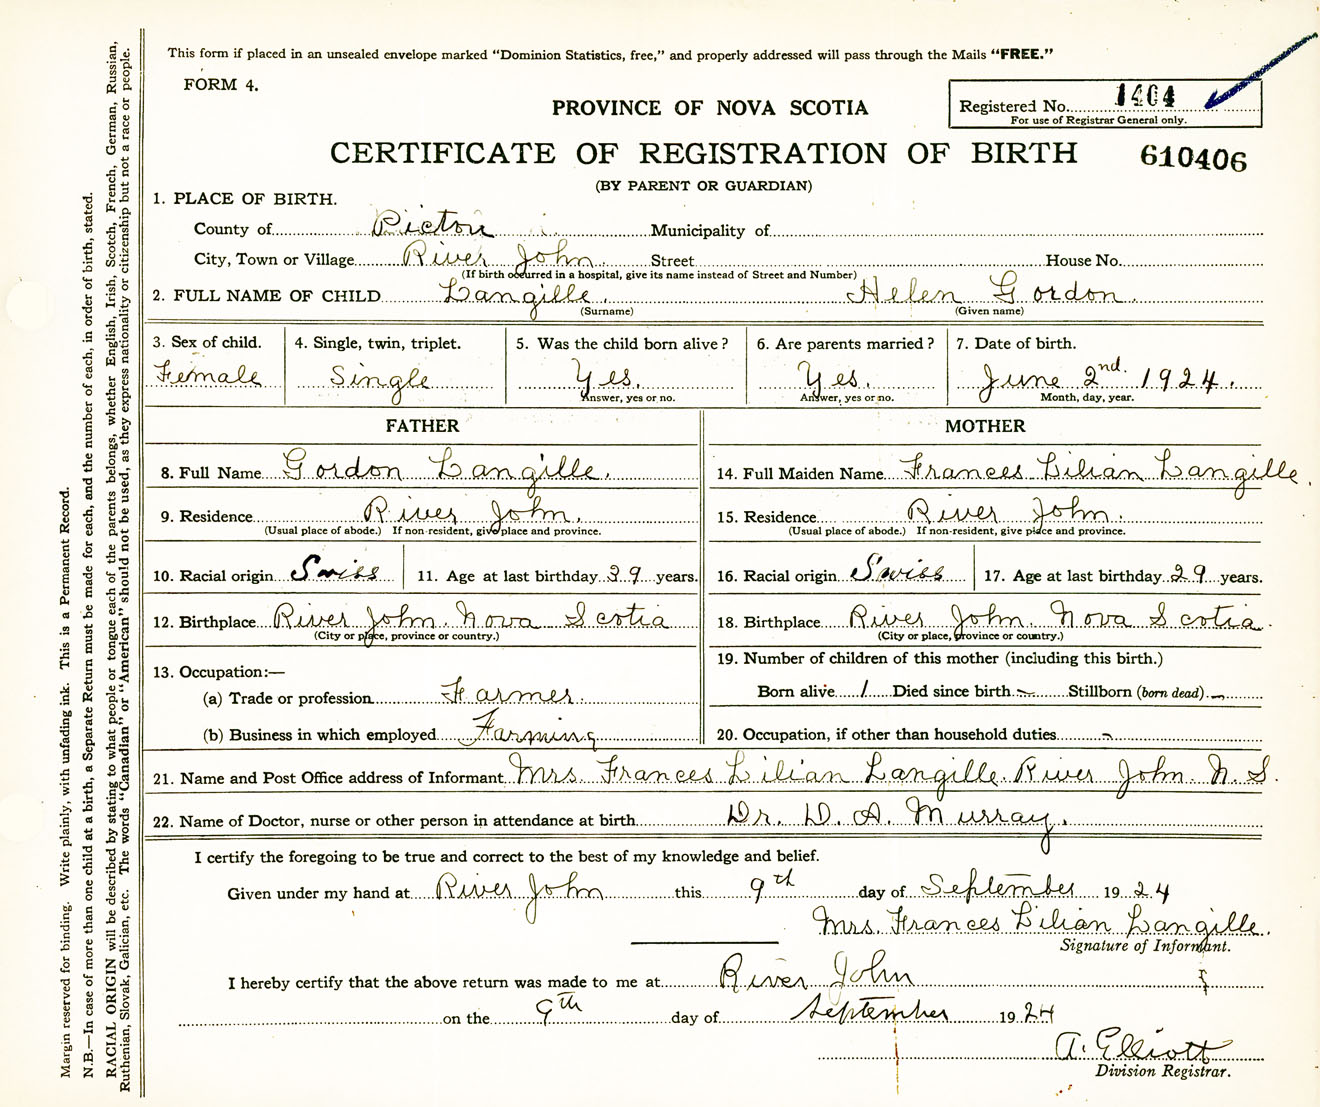 This form if placed in an unsealed envelope marked "Dominion Statistics, free," and properly addressed will pass through the Mails "FREE."
FORM 4.
Registered No. 1404
For use of Registrar General only.
PROVINCE OF NOVA SCOTIA
CERTIFICATE OF REGISTRATION OF BIRTH 610406
(BY PARENT OR GUARDIAN)
1. PLACE OF BIRTH.
County of Pictou Municipality of
City, Town or Village River John Street House No.
(If birth occurred in a hospital, give its name instead of Street and Number)
2. FULL NAME OF CHILD Langille. Helen Gordon.
(Surname) (Given name)
3. Sex of child. 4. Single, twin, triplet. 5. Was the child born alive? 6. Are parents married? 7. Date of birth.
Female Single Yes. Yes. June 2nd. 1924.
Answer, yes or no. Answer, yes or no. Month, day, year.
FATHER MOTHER
8. Full Name Gordon Langille. 14. Full Maiden Name Frances Lilian Langille.
9. Residence River John. 15. Residence River John.
(Usual place of abode.) If non-resident, give place and province. (Usual place of abode.) If non-resident, give place and province.
10. Racial origin Swiss 11. Age at last birthday 39 years. 16. Racial origin Swiss 17. Age at last birthday 29 years.
12. Birthplace River John. Nova Scotia 18. Birthplace River John. Nova Scotia.
(City or place, province or country.) (City or place, province or country.)
13. Occupation:— 19. Number of children of this mother (including this birth.)
(a) Trade or profession Farmer. Born alive 1 Died since birth - Stillborn (born dead) -
(b) Business in which employed Farming 20. Occupation, if other than household duties -
21. Name and Post Office address of Informant Mrs. Frances Lilian Langille. River John N. S.
22. Name of Doctor, nurse or other person in attendance at birth Dr. D. A. Murray.
I certify the foregoing to be true and correct to the best of my knowledge and belief.
Given under my hand at River John this 9th day of September 1924
Mrs. Frances Lilian Langille.
Signature of Informant.
I hereby certify that the above return was made to me at River John
on the 9th day of September 1924
A. Elliott
Division Registrar.
Margin reserved for binding. Write plainly, with unfading ink. This is a Permanent Record.
N.B.—In case of more than one child at a birth, a Separate Return must be made for each, and the number of each, in order of birth, stated.
RACIAL ORIGIN will be described by stating to what people or tongue each of the parents belongs, whether English, Irish, Scotch, French, German, Russian,
Ruthenian, Slovak, Galician, etc. The words "Canadian" or "American" should not be used, as they express nationality or citizenship but not a race or people.